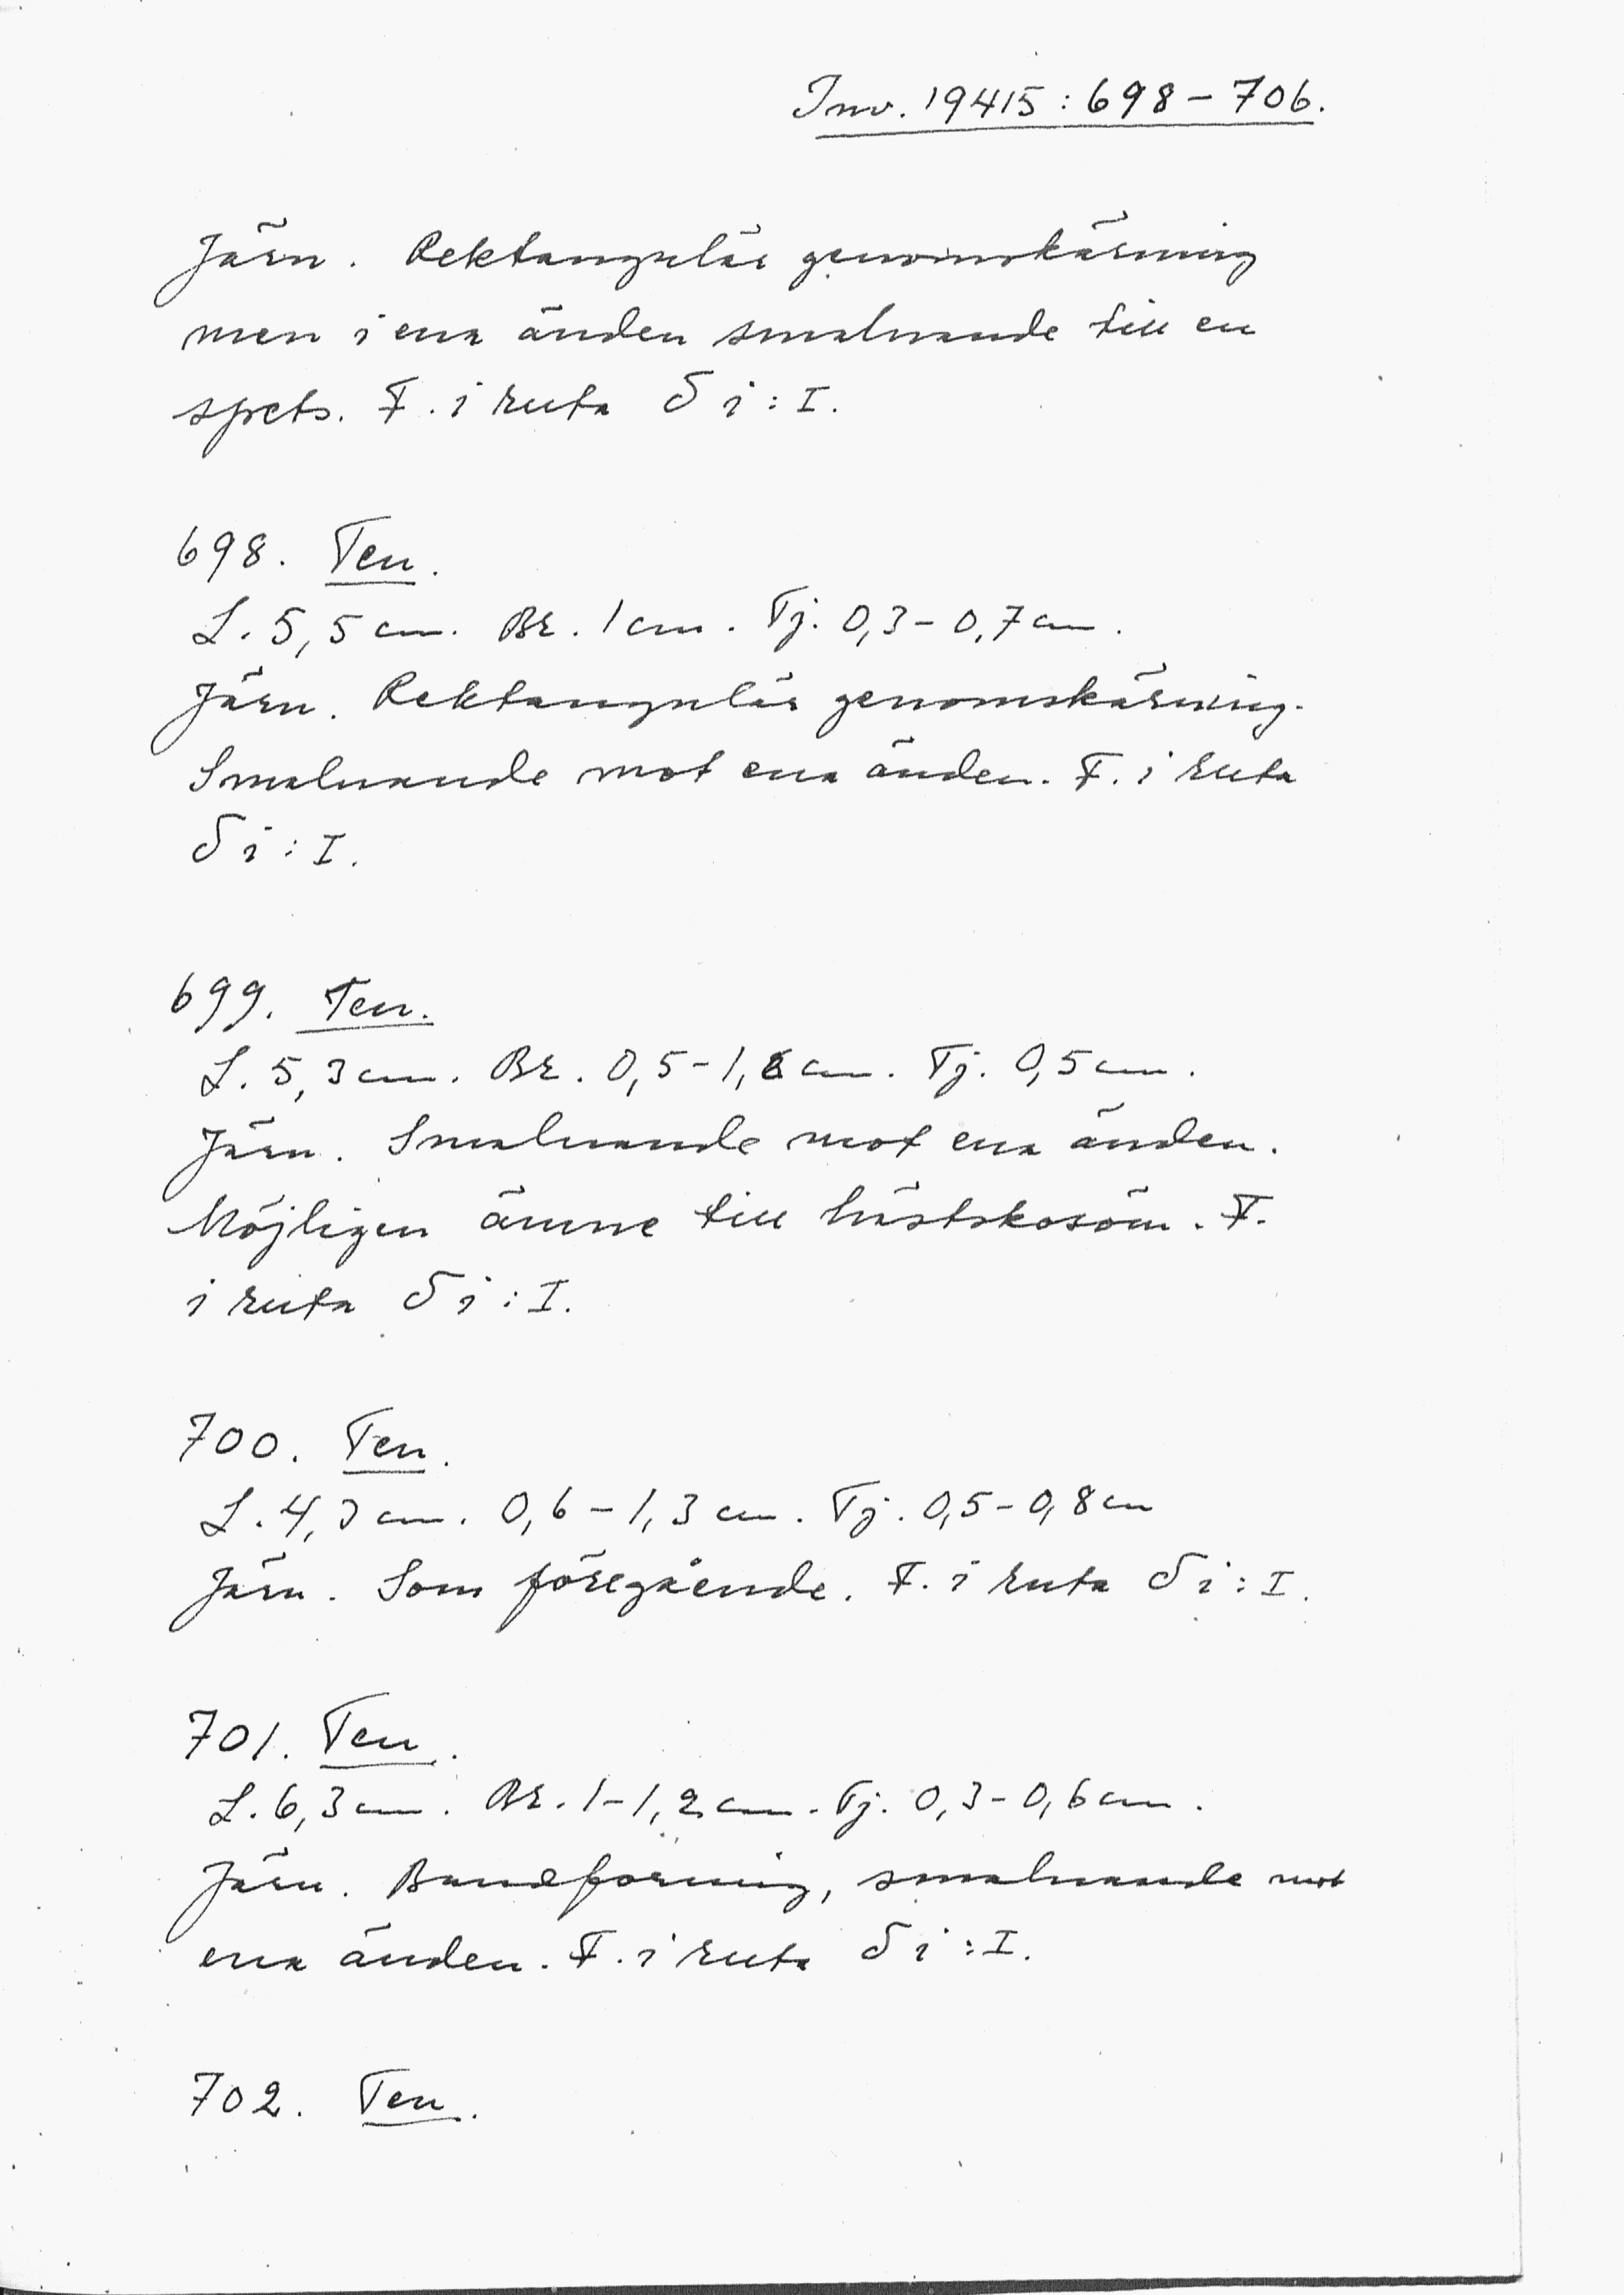 Inv. 19415:698-706.
Järn. Rektangulär genomskärning
men i ena änden smalnande till en
spets. F. i ruta δ i:I.
698. Ten.
L. 5,5 cm. Br. 1 cm. Tj. 0,3-0,7 cm.
Järn. Rektangulär genomskärning.
Smalnande mot ena änden. F. i ruta
δ i:I.
699. Ten.
L. 5,3 cm. Br. 0,5-1, cm. Tj. 0,5 cm.
Järn. Smalnande mot ena änden.
Möjligen ämne till hästskosöm. F.
i ruta δ i:I.
700. Ten.
L. cm. 0,6-1,3 cm. Tj. 0,5-0,8 cm
Järn. Som föregående. F. i ruta δ i:I.
701. Ten.
L. 6,3 cm. Br. 1-1,2 cm. Tj. 0,3-0,6 cm.
Järn. Bandformig, smalnande mot
ena änden. F. i ruta δ i:I.
702. Ten.